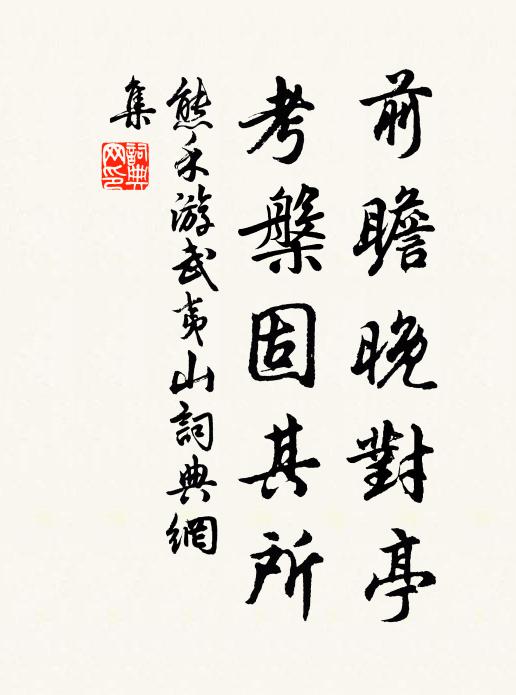 前瞻晚對亭
考槃固其所
熊禾游武夷山詞典網
集
詞典網印